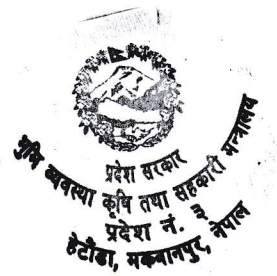 प्रदेश सरकार
भुमि ब्यवस्था कृषि तथा सहकारी मन्त्रालय
प्रदेश नं. ३
हेटौंडा, मकवानपुर, नेपाल